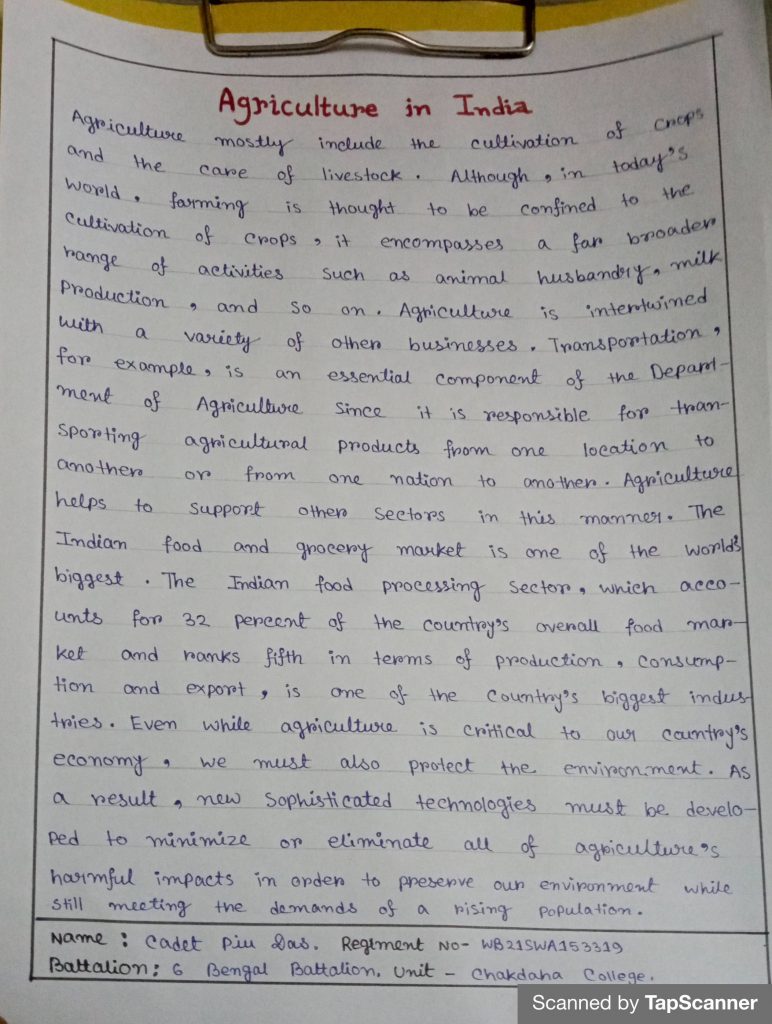 Agriculture in India
Agriculture mostly include the cultivation of crops
and the care of livestock. Although, in today's
world, farming is thought to be confined to the
cultivation of crops, it encompasses a far broader
range of activities such as animal husbandry, milk
production, and so on. Agriculture is intertwined
with a variety of other businesses. Transportation,
for example, is an essential component of the Depart-
ment of Agriculture since it is responsible for tran-
sporting agricultural products from one location to
another or from one nation to another. Agriculture
helps to support other sectors in this manner. The
Indian food and grocery market is one of the world's
biggest. The Indian food processing sector, which acco-
unts for 32 percent of the country's overall food mar-
ket and ranks fifth in terms of production, consump-
tion and export, is one of the country's biggest indus-
tries. Even while agriculture is critical to our country's
economy, we must also protect the environment. As
a result, new sophisticated technologies must be develo-
ped to minimize or eliminate all of agriculture's
harmful impacts in order to preserve our environment while
still meeting the demands of a rising population.
Name: Cadet Piu Das. Regiment No- WB21SWA153319
Battalion: 6 Bengal Battalion, Unit - Chakdaha College.
Scanned by TapScanner